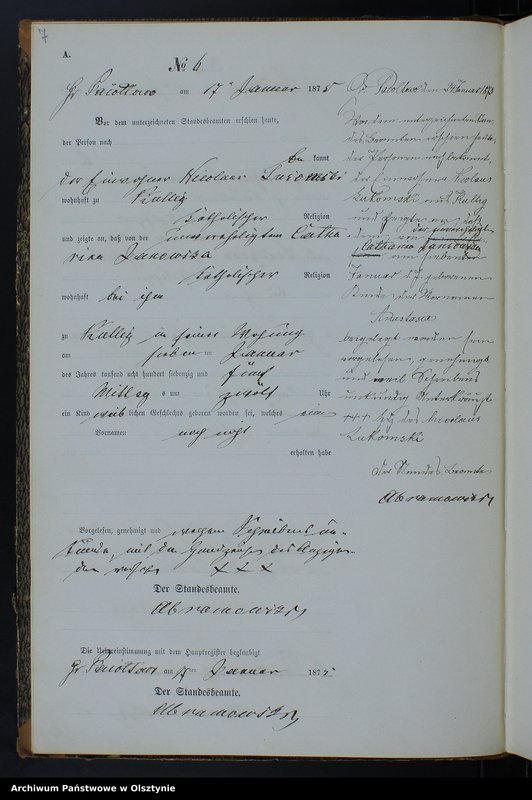 7
A.
No 6
Gr. am 17 Januar 1875
Vor dem unterzeichneten Standesbeamten erschien heute,
der Person nach
be kannt
der Einwohner Nicolaus Lukomski
wohnhaft zu
katholischer Religion
und zeigte an, daß von der unverehelichten Catha-
rina
katholischer Religion
wohnhaft bei ihm
zu in seiner Wohnung
am sieben ten Januar
des Jahres tausend acht hundert siebenzig und fünf
Mittag s um zwölf Uhr
ein Kind weib lichen Geschlechts geboren worden sei, welches einen
Vornamen noch nicht
erhalten habe
Vorgelesen, genehmigt und wegen Schreibens un-
kunde, mit dem Handzeichen des Anzeigen-
den versehen + + +
Der Standesbeamte.
Abramowski
Die Uebereinstimmung mit dem Hauptregister beglaubigt
Gr. am 17 ten Januar 1875
Der Standesbeamte.
Abramowski
Gr. den Januar 1875
Vor dem unterzeichneten Stan-
des Beamten erschien heute,
der Person nach bekannt,
der Einwohner Nicolaus
Lukomski aus
und zeigte an, daß
dem von der unverehelichten
Catharina
am siebenten
Januar d. J. geborenen
Kinde der Vornamen
Anastasia
beigelegt worden sei
vorgelesen, genehmigt
und weil Schreibens
unkundig unterkreuzt
+++ des Nicolaus
Lukomski
Der Standes Beamte
Abramowski
Archiwum Państwowe w Olsztynie